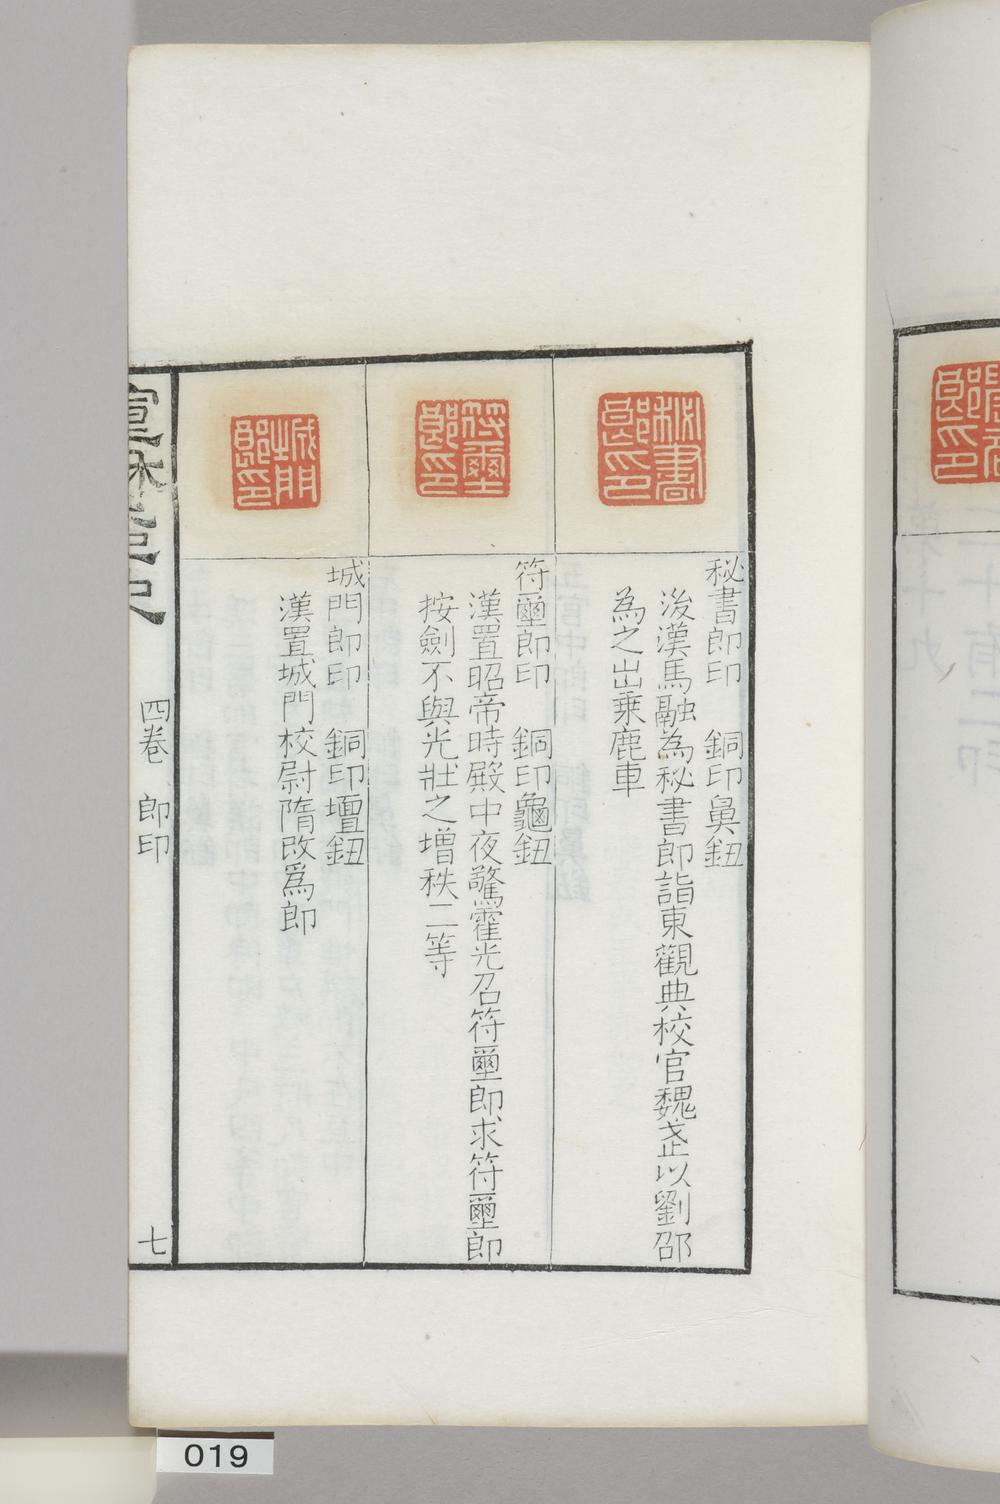 秘書
郎印
秘書郎印　銅印鼻鈕
後漢馬融為秘書郎詣東觀典校官魏武以劉邵
為之出乗鹿車
符璽
郎印
符璽郎印　銅印龜鈕
漢置昭帝時殿中夜驚霍光召符璽郎求符璽郎
按劍不與光壯之增秩二等
城門
郎印
城門郎印　銅印壇鈕
漢置城門校尉隋改爲郎
四卷　郎印
七
019